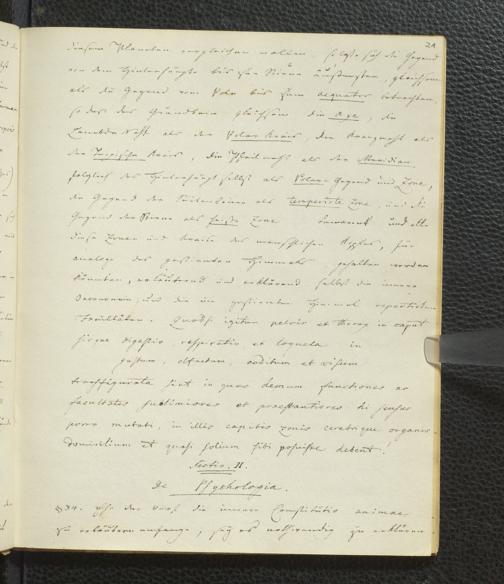 21
diesem Planeten vergleichen wollen, so ließe sich die Gegend
von dem Hinterhaupte bis zur Stirne äußersten, gleichsam
als die Gegend vom Polo bis zum Aequator betrachten,
so daß der Grundbein gleichsam die Axe, die
Lambda Naht als der Polar Kreis, die Kranznaht als
der Tropische Kreis, die Pfeilnaht als der Meridian,
folglich das Hinterhaupt selbst als Polar Gegend und Zone,
die Gegend der Seitenbeine als temperirte Zone, und die
Gegend der Stirne als heiße Zone benannt, und alle
diese Zonen und Kreise des menschlichen Kopfes, für
analoge des gestirnten Himmels gehalten werden
könnten, erläuternd und erklärend selbst die innere
und die im gestirnten Himmel
Facultäten. Quodsi igitur pelvis et thorax in caput
sicque digestio, respiratio et loquela in
gustum, olfactum, auditum et visum
transfigurata sint in quas demum functiones ac
facultates sublimiores et praestantiores hi sensus
porro mutati, in illis capitis zonis cerebrique organis
domicilium et quasi solium sibi posuisse debent!
Sectio II.
De Psychologia.
§ 34. Ehe der Verf. die innere Constitutio animae
zu erläutern anfange, sey es nothwendig zu erklären